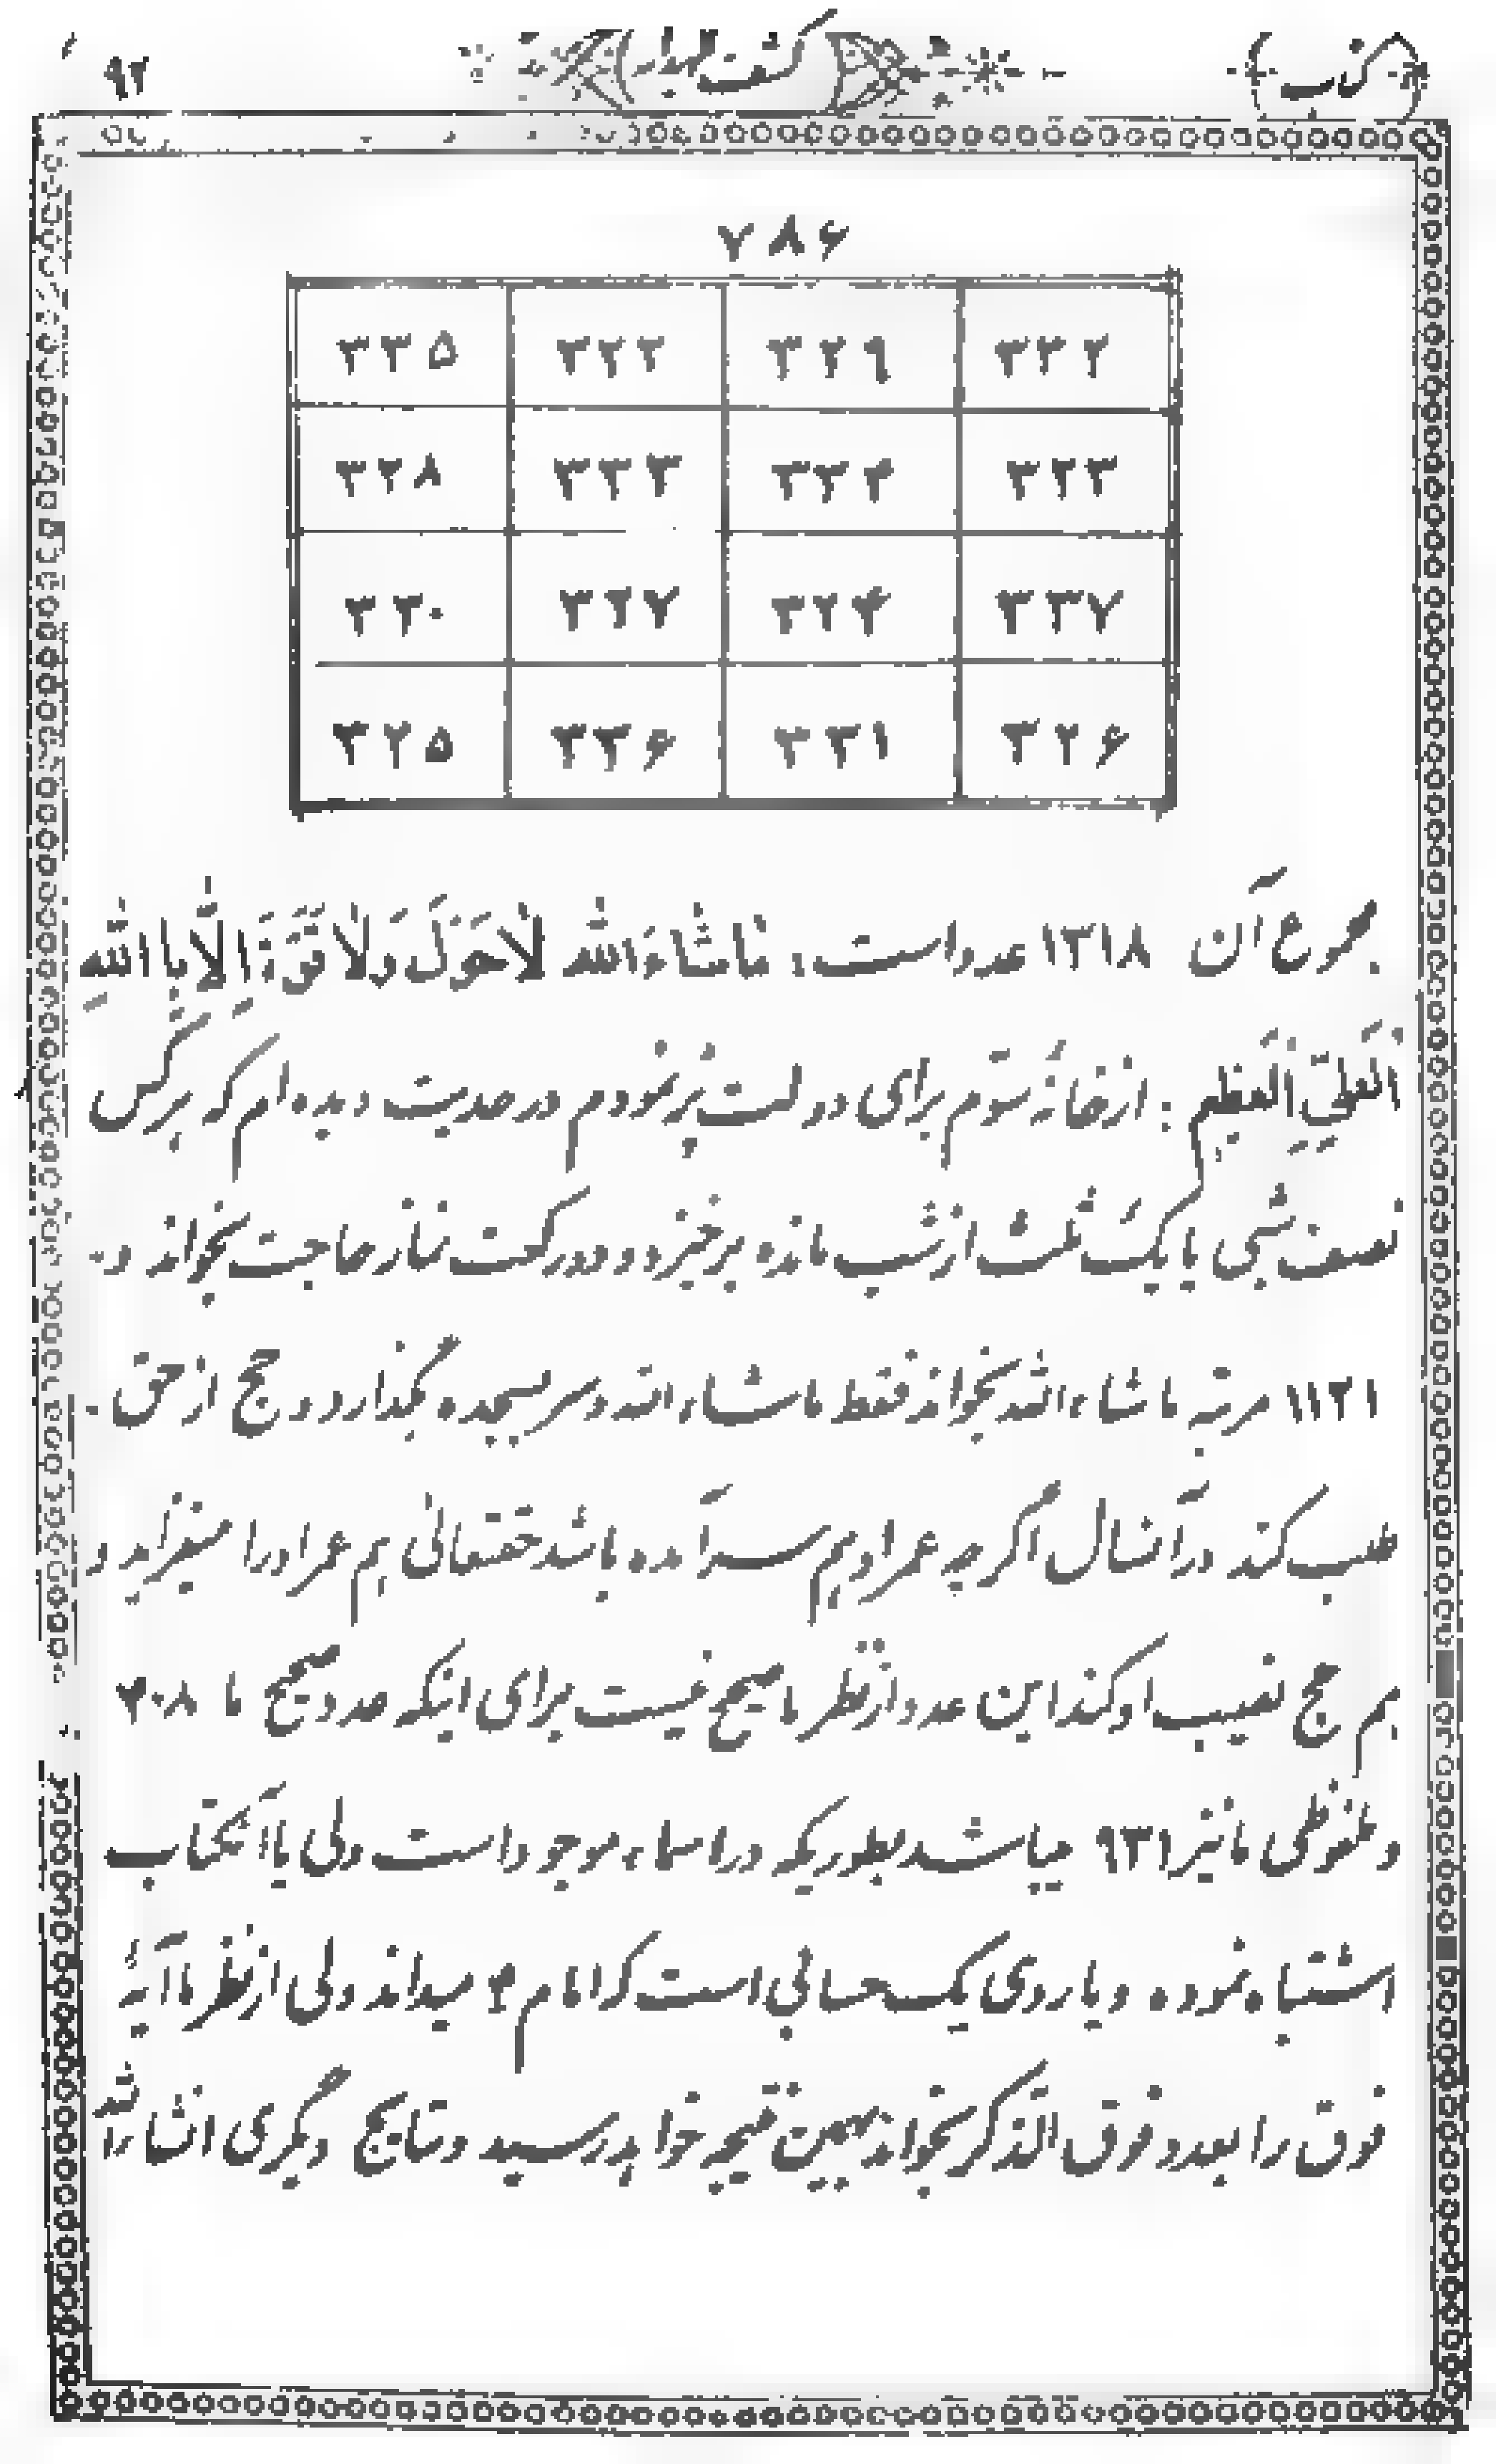 کتاب کشف الاسرار ۹۲
۷۸۶
۳۳۵ ۳۲۲ ۳۲۹ ۳۳۲
۳۲۸ ۳۳۳ ۳۳۴ ۳۲۳
۳۳۰ ۳۲۷ ۳۲۴ ۳۳۷
۳۲۵ ۳۳۶ ۳۳۱ ۳۲۶
مجموع آن ۱۳۱۸ عدد است : مٰا شٰاءَ الله لٰا حَوْلَ وَلٰا قُوَّةَ اِلّٰا بِاللهِ
الْعَلِيِّ الْعَظِيمِ : از خانهٔ سوّم برای دولت پر نمودم در حدیث دیده‌ام که هرکس
نصف شبی یا یک ثلث از شب مانده برخیزد و دو رکعت نماز حاجت بخواند و
۱۱۲۱ مرتبه ما شاءالله بخواند فقط ماشاءالله و سر بسجده بگذارد و حج از حق
طلب کند در آنسال اگرچه عمر او بهم سرآمده باشد حقتعالی هم عمر او را میفزاید و
هم حج نصیب او کند این عدد از نظر ما صحیح نیست برای اینکه عدد صحیح ما ۴۰۸
و ملفوظی ما نیز ۹۳۱ میباشد بطوریکه در اسماء موجود است ولی یا آنکتاب
اشتباه نموده و یا روی یک حسابی است که امام ۴ میداند ولی از نظر ما آیهٔ
فوق را بعدد فوق الذّکر بخواند بهمین نتیجه خواهد رسید و نتایج دیگری انشاءالله